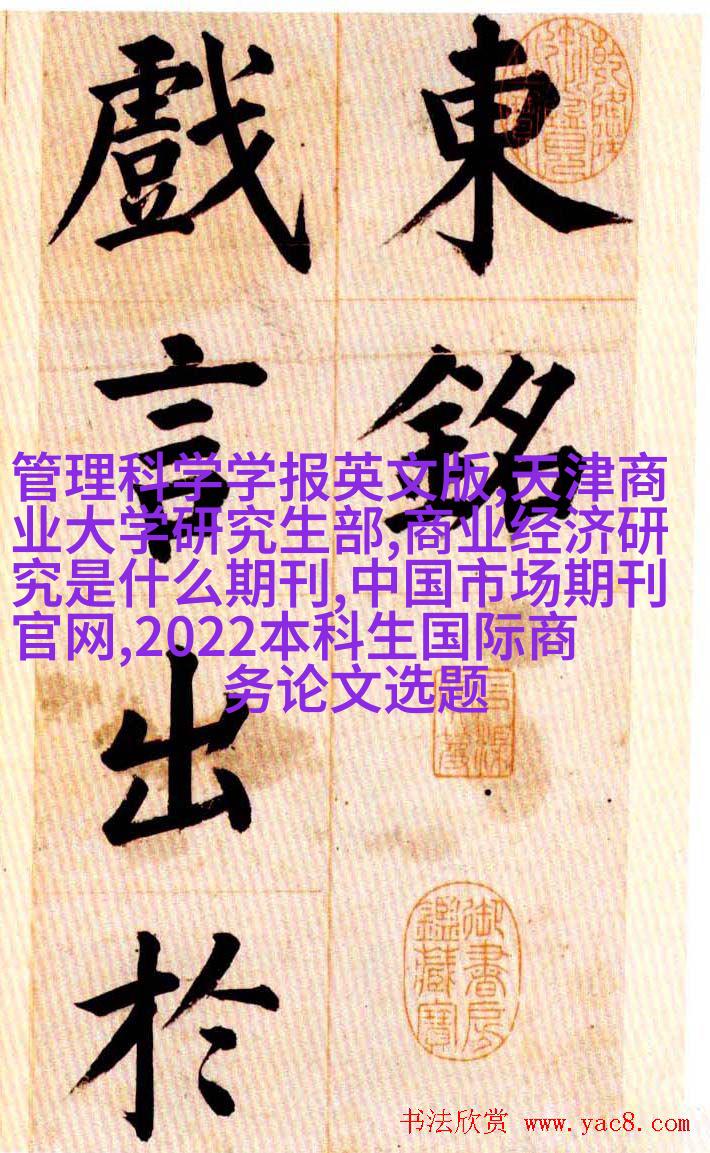 東銘
戲言出於
管理科学学报英文版,天津商
业大学研究生部,商业经济研
究是什么期刊,中国市场期刊
官网,2022本科生国际商
务论文选题
御書房鑑藏寶
书法欣赏 www.yac8.com